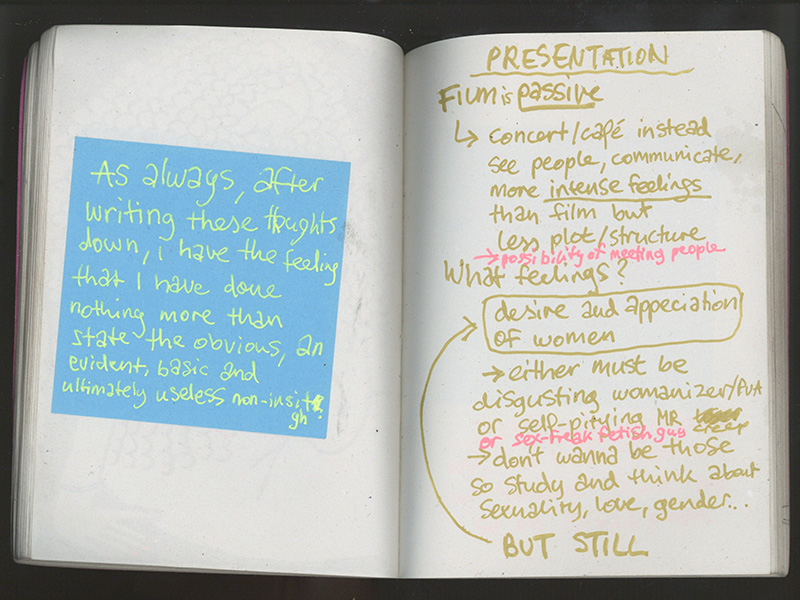 As always, after
writing these thughts
down, i have the feeling
that I have done
nothing more than
state the obvious, an
evident, basic and
ultimately useless non-insit
gh
PRESENTATION
Film is passive
↳ concert/café instead
see people, communicate,
more intense feelings
than film but
less plot/structure
→ possibility of meeting people
What feelings?
desire and appeciation
of women
→ either must be
disgusting womanizer/PUA
or self-pitying MR
creep
or sex-freak fetish guy
→ don't wanna be those
so study and think about
sexuality, love, gender...
BUT STILL